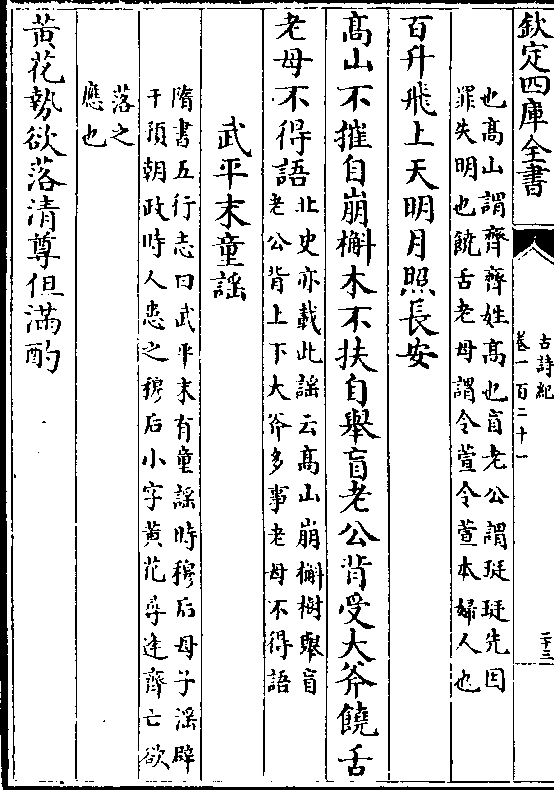 欽定四庫全書
古詩紀
卷一百二十一
二十三
也髙山謂齊齊姓髙也盲老公謂珽珽先因
罪失明也饒舌老母謂令萱令萱本婦人也
百升飛上天明月照長安
髙山不摧自崩槲木不扶自舉盲老公背受大斧饒舌
老母不得語
北史亦載此謡云髙山崩槲樹舉盲
老公背上下大斧多事老母不得語
武平末童謡
隋書五行志曰武平末有童謡時穆后母子淫辟
干預朝政時人患之穆后小字黄花尋逢齊亡欲
落之
應也
黄花勢欲落清尊但滿酌